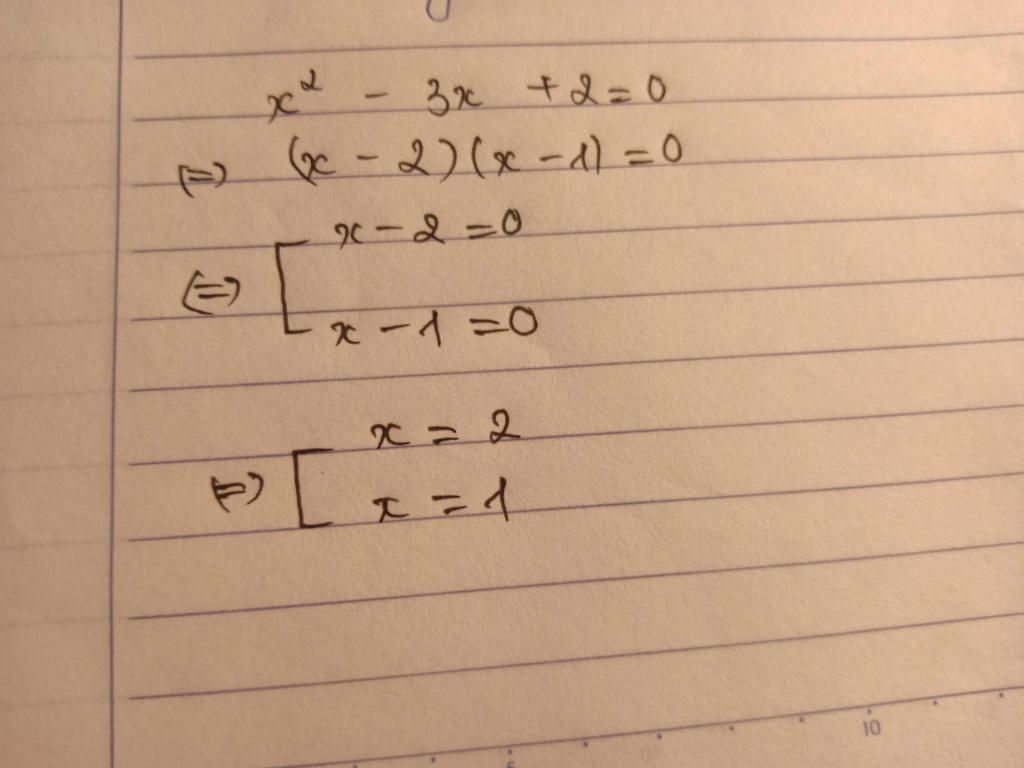 x² - 3x + 2 = 0
⇔ (x - 2)(x - 1) = 0
⇔ [ x - 2 = 0
x - 1 = 0
⇔ [ x = 2
x = 1
10